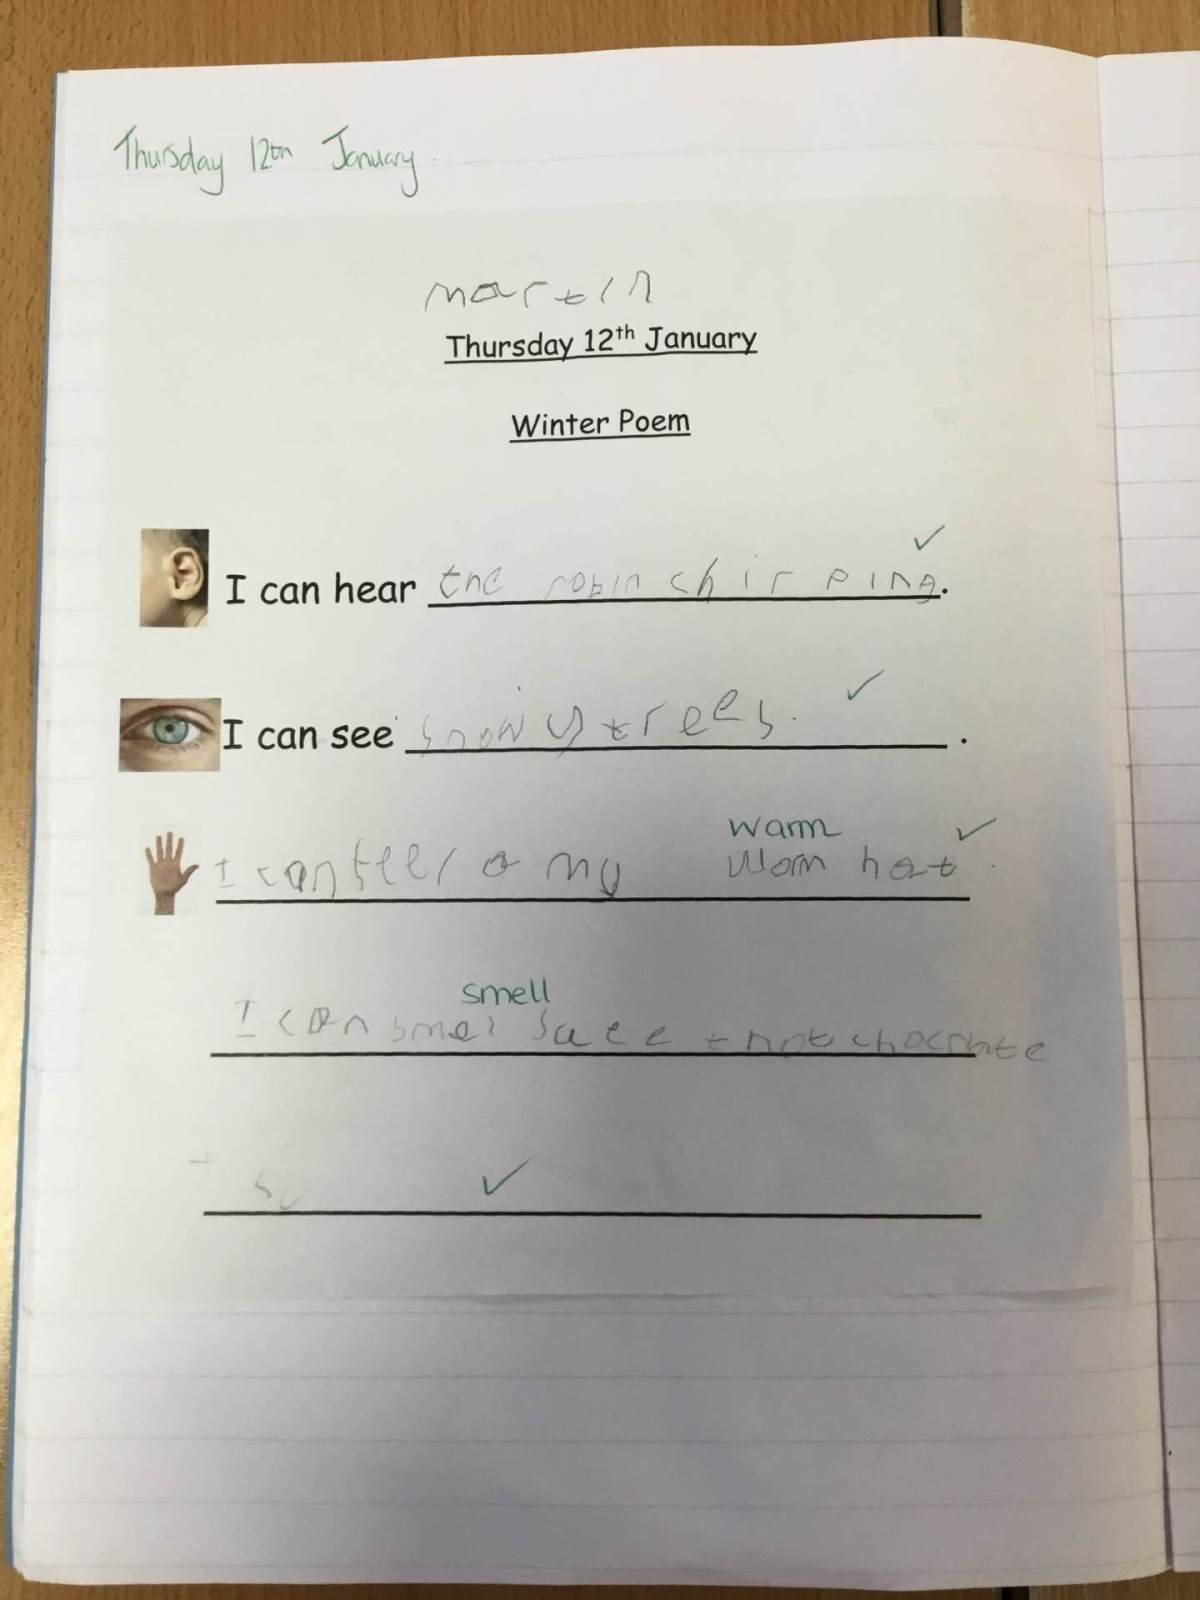 Thursday 12th January.
martin
Thursday 12th January
Winter Poem
I can hear the robin chirping.
I can see snowy trees. .
warm
I can feel a my worm hat.
smell
I can smel hot chocolate